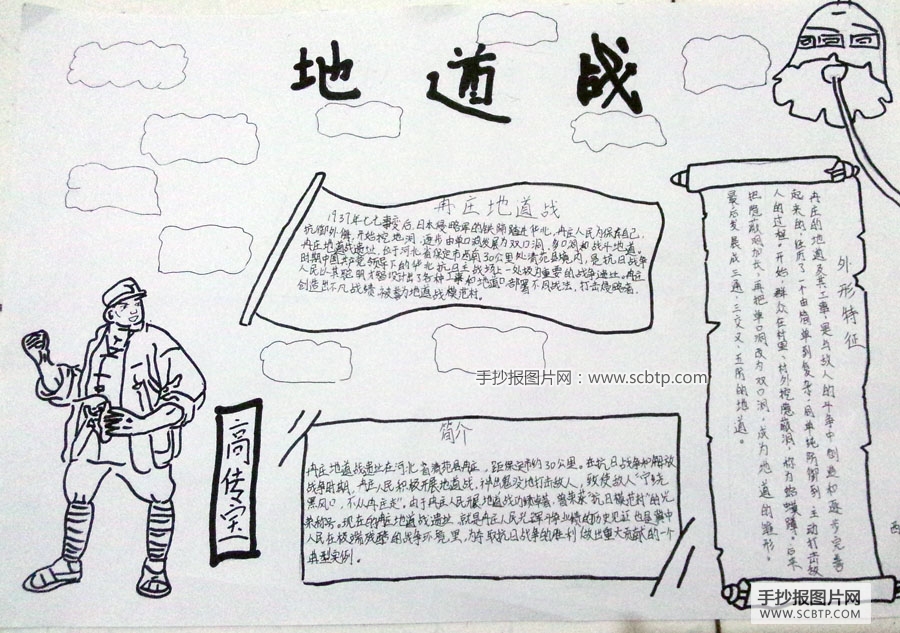 地道战
冉庄地道战
1937年七七事变后,日本侵略军的铁蹄踏进华北,冉庄人民为保存自己,
抗御外侮,开始挖地洞,逐步由单口洞发展为双口洞,多口洞和战斗地道。
冉庄地道战遗址,位于河北省保定市西南30公里处清苑县境内,是抗日战争
时期中国共产党领导下的华北抗日主战场上一处极为重要的战争遗址。冉庄
人民以其聪明才智设计出了各种工事和地道口,部署不同战法,打击侵略者,
创造出不凡战绩,被誉为地道战模范村。
手抄报图片网:www.scbtp.com
高传宝
简介
冉庄地道战遗址在河北省清苑县冉庄,距保定市约30公里。在抗日战争和解放
战争时期,冉庄人民积极开展地道战,神出鬼没地打击敌人,致使敌人"宁绕
黑风口,不从冉庄走"。由于冉庄人民开展地道战功绩卓著,曾荣获"抗日模范村"的光
荣称号。现在的冉庄地道战遗址,就是冉庄人民光辉斗争业绩的历史见证也是冀中
人民在极端残酷的战争环境里,为夺取抗日战争的胜利做出重大贡献的一个
典型实例。
外形特征
冉庄的地道及其工事,是与敌人的斗争中创造和逐步完善
起来的,经历了一个由简单到复杂,用单纯防御到主动打击敌
人的过程。开始,群众在村里、村外挖隐蔽洞,称为蛤蟆蹲,后来
把隐蔽洞加长,再把单口洞改为双口洞,成为地道的雏形。
最后发展成三通,三交叉,五防的地道。
西
手抄报图片网
WWW.SCBTP.COM